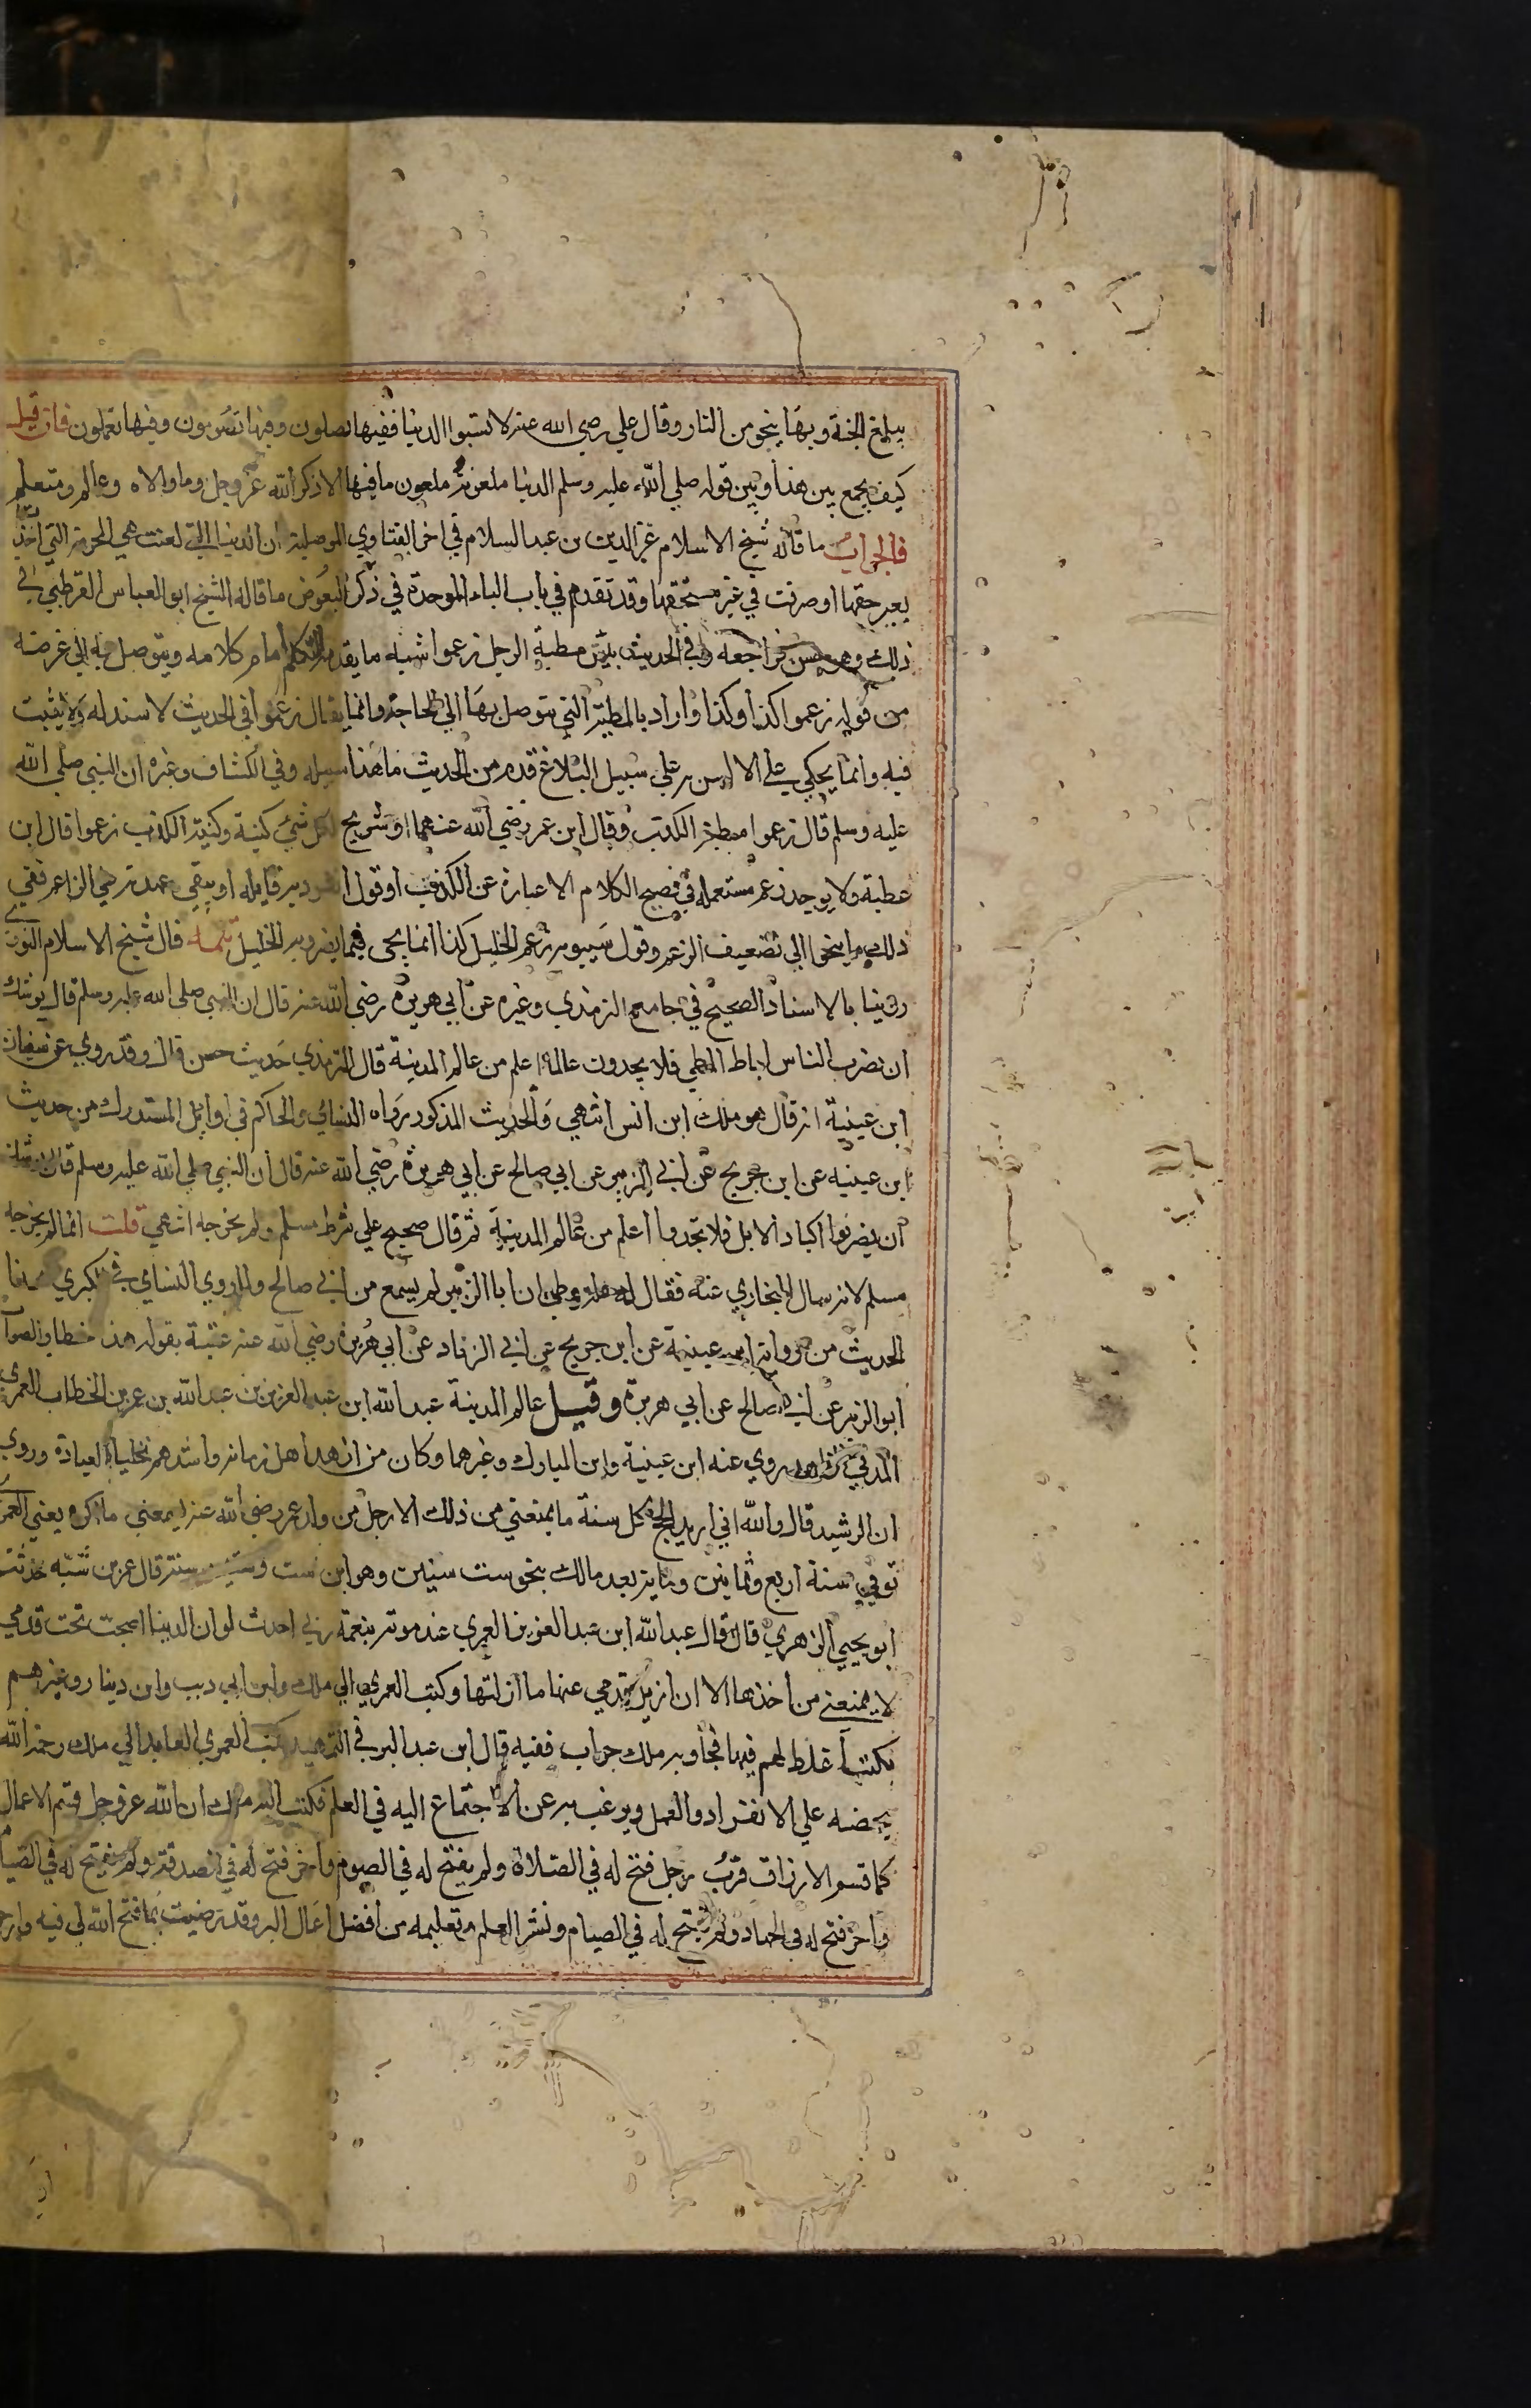 يبلغ الجنة وبها ينجو من النار وقال علي رضي الله عنه لا تسبوا الدنيا ففيها تصلون وفيها تصومون وفيها تعملون فان قيل
كيف يجمع بين هذا وبين قوله صلي الله عليه وسلم الدنيا ملعونة ملعون ما فيها الا ذكر الله عز وجل وما والاه وعالم ومتعلم
فالجواب ما قاله شيخ الاسلام عز الدين بن عبد السلام في اخر الفتاوي الموصلية ان الدنيا التي لعنت هي المحرمة التي اخذت
بغير حقها او صرفت في غير مستحقها وقد تقدم في باب الباء الموحدة في ذكر البعوض ما قاله الشيخ ابو العباس القرطبي في
ذلك وهو حسن فراجعه وفي الحديث بئس مطية الرجل زعموا شبه ما يقدمه المتكلم امام كلامه ويتوصل به الي غرضه
من قوله زعموا كذا وكذا واراد بالمطية التي يتوصل بها الي الحاجة وانما يقال زعموا في الحديث لا سند له ولا يثبت
فيه وانما يحكي علي الالسن علي سبيل البلاغ فذم من الحديث ما هذا سبيله وفي الكشاف وغيره ان النبي صلي الله
عليه وسلم قال زعموا مطية الكذب وقال ابن عمر رضي الله عنهما او شريح لكل شيء كنية وكنية الكذب زعموا قال ابن
عطية ولا يوجد زعم مستعملة في فصيح الكلام الا عبارة عن الكذب او قول انفرد به قايله او يبقي عهدته علي الزاعم ففي
ذلك ما ينحو الي تضعيف الزعم وقول سيبويه زعم الخليل كذا انما يجي فيما ينفرد به الخليل تتمة قال شيخ الاسلام النووي
روينا بالاسناد الصحيح في جامع الترمذي وغيره عن ابي هريرة رضي الله عنه قال ان النبي صلي الله عليه وسلم قال يوشك
ان يضرب الناس اباط المطي فلا يجدون عالما اعلم من عالم المدينة قال الترمذي حديث حسن قال وقد روي عن سفيان
ابن عيينة انه قال هو ملك ابن انس انتهي والحديث المذكور رواه النسائي والحاكم في اوايل المستدرك من حديث
ابن عيينه عن ابن جريج عن ابي الزبير عن ابي صالح عن ابي هريرة رضي الله عنه قال ان النبي صلي الله عليه وسلم قال يوشك
ان يضربوا اكباد الابل فلا تجدوا اعلم من عالم المدينة ثم قال صحيح علي شرط مسلم ولم يخرجه انتهي قلت انما لم يخرجه
مسلم لانه سال البخاري عنه فقال له ان ابا الزبير لم يسمع من ابي صالح ولما روي النساي في الكبري هذا
الحديث من رواية ابن عيينة عن ابن جريج عن ابي الزناد عن ابي هريرة رضي الله عنه عقبه بقوله هذا خطا والصواب
ابو الزبير عن ابي صالح عن ابي هريرة وقيل عالم المدينة عبد الله ابن عبد العزيز بن عبد الله بن عمر بن الخطاب العمري
المدني روي عنه ابن عيينة وابن المبارك وغيرهما وكان من ازهد اهل زمانه واشدهم تخليا للعبادة وروي
ان الرشيد قال والله اني اريد الحج كل سنة ما يمنعني من ذلك الا رجل من ولد عمر رضي الله عنه يسمعني ما اكره يعني العمري
توفي سنة اربع وثمانين وماية بعد مالك بنحو ست سنين وهو ابن ست وستين سنة قال عمر بن شبه حدثنا
ابو يحيي الزهري قال قال عبد الله ابن عبد العزيز العمري عند موته بنعمة ربي احدث لو ان الدنيا اصبحت تحت قدمي
لا يمنعني من اخذها الا ان ازيل قدمي عنها ما ازلتها وكتب العمري الي ملك وابن ابي ديب وابن دينار وغيرهم
بكتب اغلظ لهم فيها فجاوبه ملك جواب فقيه قال ابن عبد البر في التمهيد كتب العمري العابد الي ملك رحمه الله
يحضه علي الانفراد والعمل ويرغب به عن الاجتماع اليه في العلم فكتب اليه ملك ان الله عز وجل قسم الاعمال
كما قسم الارزاق فرب رجل فتح له في الصلاة ولم يفتح له في الصوم واخر فتح له في الصدقة ولم يفتح له في الصيام
واخر فتح له في الجهاد ولم يفتح له في الصيام ونشر العلم وتعليمه من افضل اعمال البر وقد رضيت بما فتح الله لي فيه وارجو